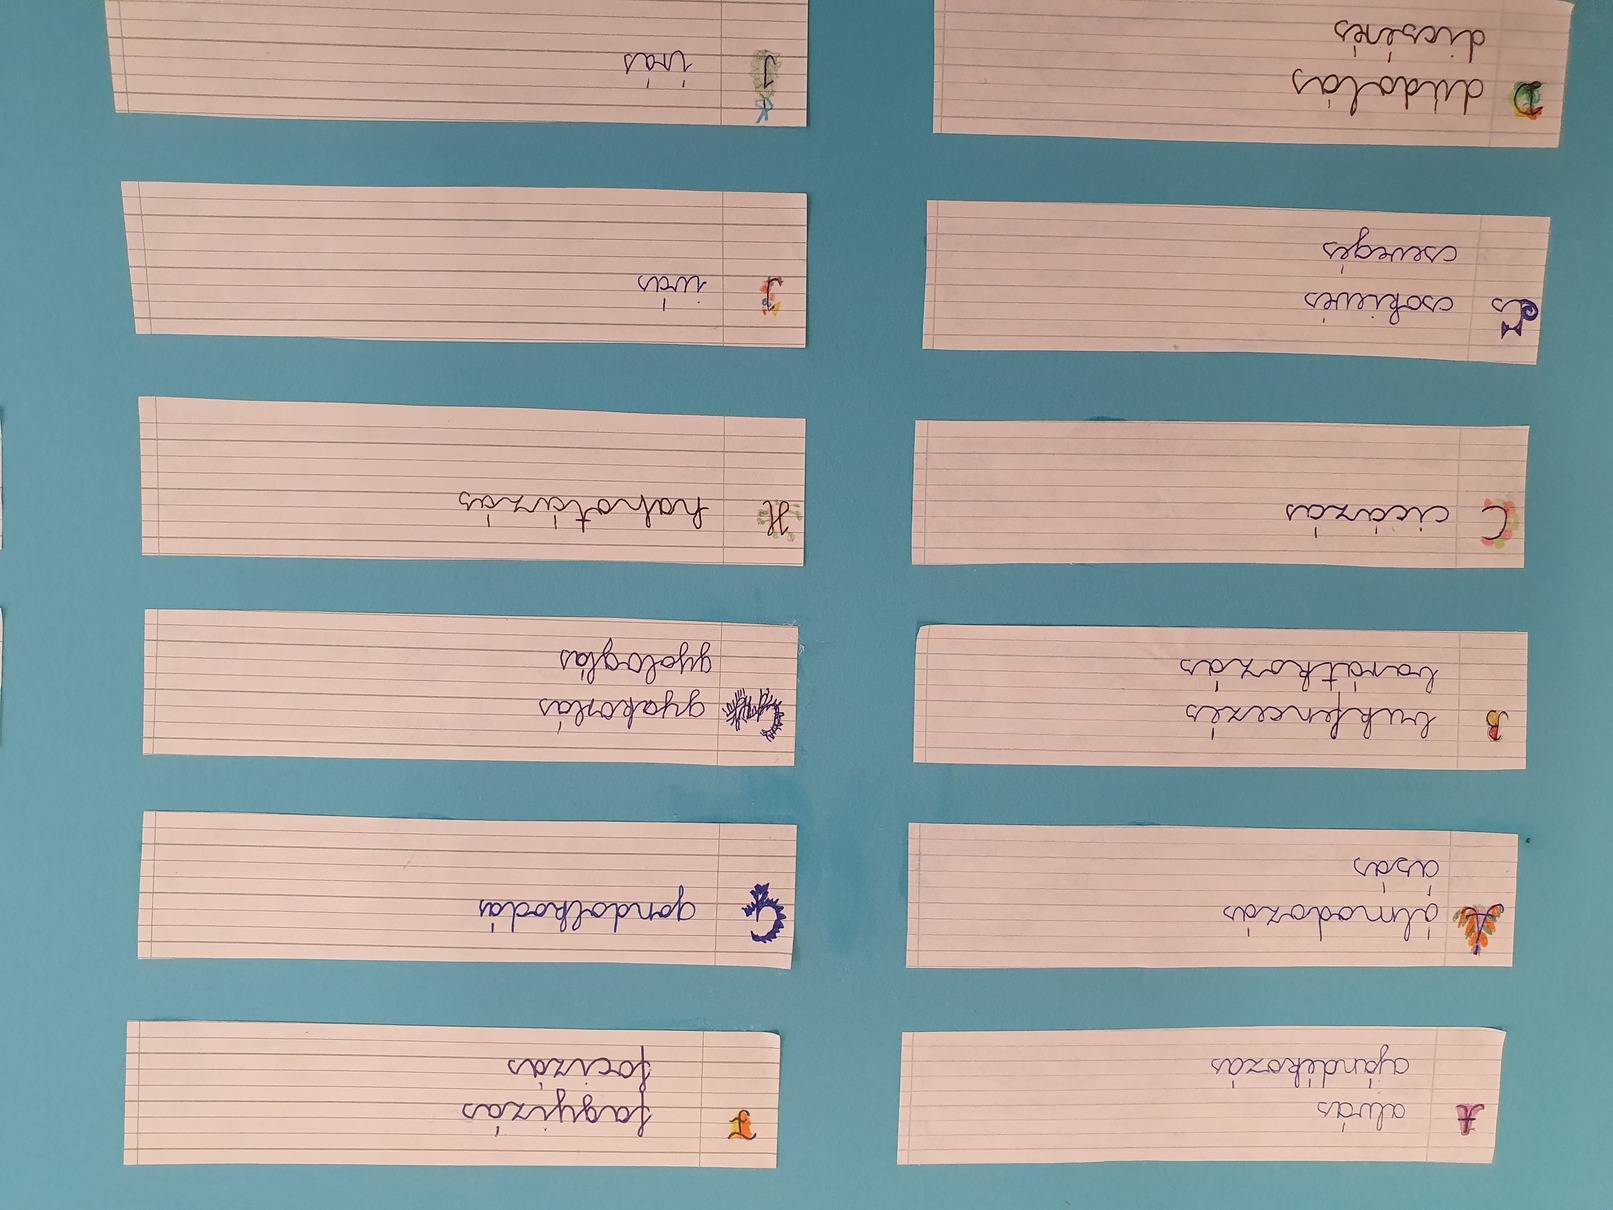 A alvás
ajándékozás
Á álmodozás
ásás
B bukfencezés
barátkozás
C cicázás
Cs csokievés
csevegés
D dúdolás
dicsérés
F fagyizás
focizás
G gondolkodás
Gy gyakorlás
gyaloglás
H hahotázás
I ivás
Í írás